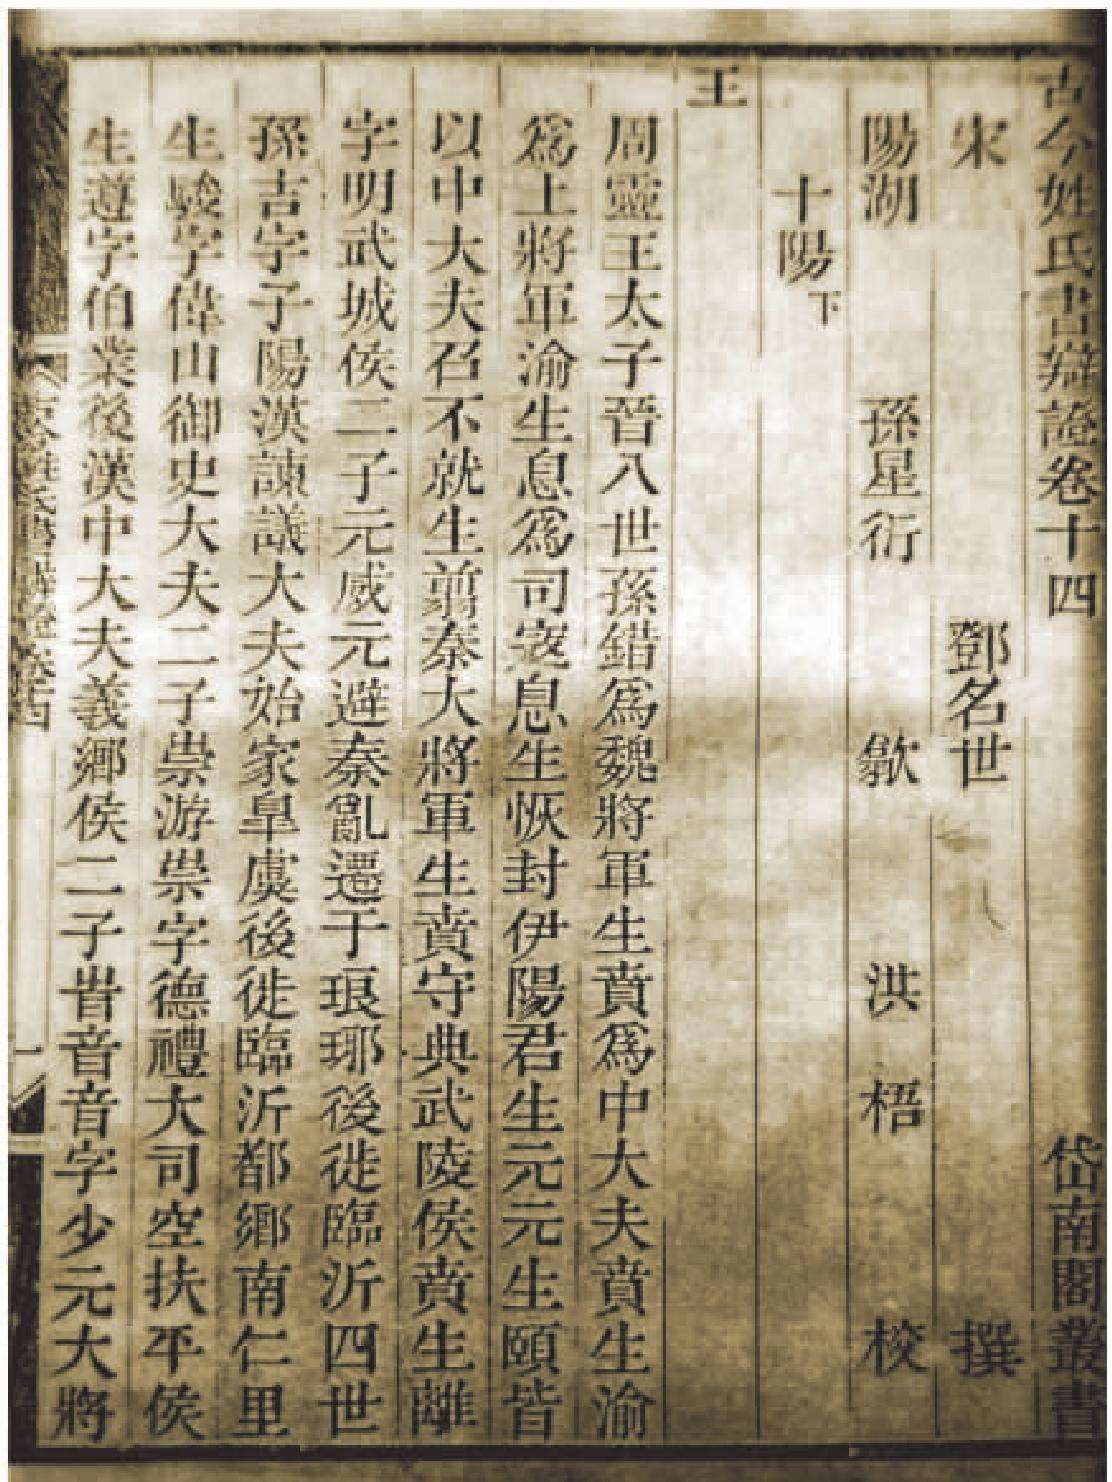 古今姓氏書辯證卷十四 岱南閣叢書
宋 鄧名世 撰
陽湖 孫星衍 歙 洪梧 校
十陽下
王
周靈王太子晉八世孫錯爲魏將軍生賁爲中大夫賁生渝
爲上將軍渝生息爲司寇息生恢封伊陽君生元元生頤皆
以中大夫召不就生翦秦大將軍生賁守典武陵侯賁生離
字明武城侯二子元威元避秦亂遷于琅琊後徙臨沂四世
孫吉字子陽漢諫議大夫始家臯虞後徙臨沂都鄉南仁里
生駿字偉山御史大夫二子崇游崇字德禮大司空扶平侯
生遵字伯業後漢中大夫義鄉侯二子旹音音字少元大將
古今姓氏書辯證 卷十四 一